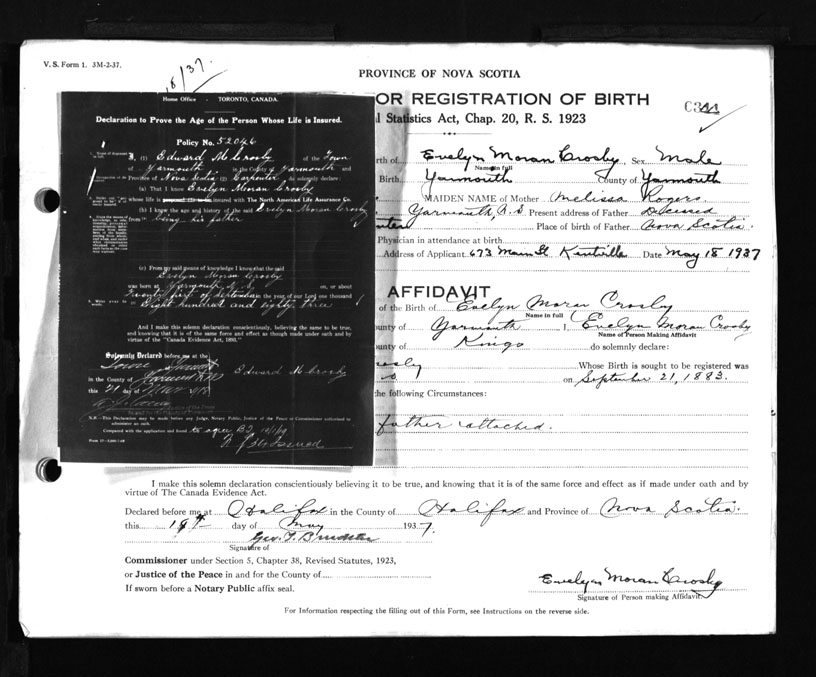 V. S. Form 1. 3M-2-37.
18/37.
PROVINCE OF NOVA SCOTIA
OR REGISTRATION OF BIRTH
l Statistics Act, Chap. 20, R. S. 1923
Home Office - TORONTO, CANADA.
Declaration to Prove the Age of the Person Whose Life is Insured.
Policy No. 52046
I, (1) Edward M Crosby of the Town
of Yarmouth in the County of Yarmouth and
Province of Nova Scotia (2) Carpenter do solemnly declare:
(a) That I know Evelyn Moran Crosby
whose life is insured with The North American Life Assurance Co.
(b) I know the age and history of the said Evelyn Moran Crosby
from being his father
(c) From my said means of knowledge I know that the said
Evelyn Moran Crosby
was born at Yarmouth N S on, or about
Twenty first of September in the year of our Lord one thousand
Eight hundred and eighty three
And I make this solemn declaration conscientiously, believing the same to be true,
and knowing that it is of the same force and effect as though made under oath and by
virtue of the "Canada Evidence Act, 1893."
Solemnly Declared before me at the
in the County of Yarmouth
this 21 day of
Edward M Crosby
N.B.—This Declaration may be made before any Judge, Notary Public, Justice of the Peace or Commissioner authorized to
administer an oath.
Compared with the application and found to agree
rth of Evelyn Moran Crosby Sex Male
Name in full
Birth Yarmouth County of Yarmouth
MAIDEN NAME of Mother Melissa Rogers
Yarmouth, N. S. Present address of Father Deceased
nter Place of birth of Father Nova Scotia.
Physician in attendance at birth
Address of Applicant 673 Main St Kentville Date May 18 1937
AFFIDAVIT
of the Birth of Evelyn Moran Crosby
Name in full
ounty of Yarmouth I, Evelyn Moran Crosby
Name of Person Making Affidavit
ounty of Kings do solemnly declare:
osby Whose Birth is sought to be registered was
S. on September 21, 1883.
the following Circumstances:
father attached.
I make this solemn declaration conscientiously believing it to be true, and knowing that it is of the same force and effect as if made under oath and by
virtue of The Canada Evidence Act.
Declared before me at Halifax in the County of Halifax and Province of Nova Scotia.
this 19th day of May 1937.
Signature of
Commissioner under Section 5, Chapter 38, Revised Statutes, 1923,
or Justice of the Peace in and for the County of
If sworn before a Notary Public affix seal.
Evelyn Moran Crosby
Signature of Person making Affidavit.
For Information respecting the filling out of this Form, see Instructions on the reverse side.